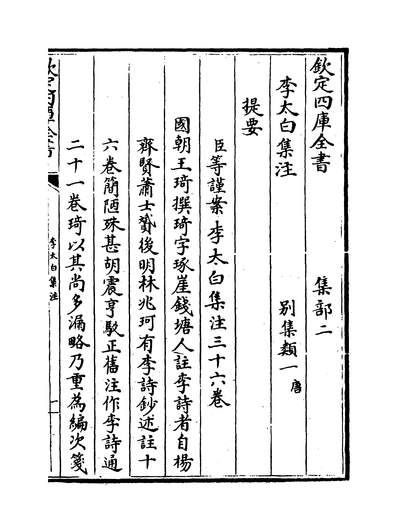 欽定四庫全書　集部二
李太白集注　別集類一唐
提要
臣等謹案李太白集注三十六卷
國朝王琦撰琦字琢崖錢塘人註李詩者自楊
齊賢蕭士贇後明林兆珂有李詩鈔述註十
六卷簡陋殊甚胡震亨駁正舊注作李詩通
二十一卷琦以其尚多漏略乃重為編次箋
李太白集注